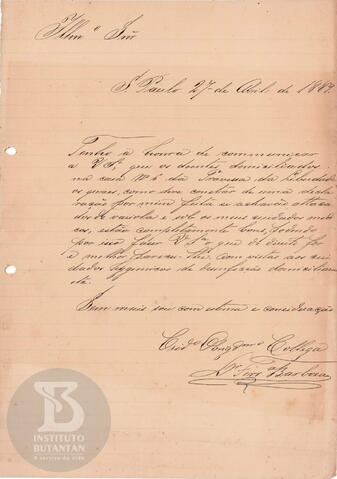 Illmo Snr
S. Paulo 27 de Abril de 1889.
Tenho a honra de communicar
a V. Sa. que os doentes domiciliados
na casa No 6 da Travessa da
os quaes, como deve constar de uma decla-
ração por mim feita se achavão ataca-
dos de variola e sob os meus cuidados medi-
cos, estão completamente bons, podendo
por isso fazer V. Sa. o que de direito for
e melhor parecer-lhe com vistas aos cui-
dados hygienicos de desinfecção domiciliaria
etc.
Sem mais sou com estima e consideração
Collega
Dr Barboza
INSTITUTO
BUTANTAN
A serviço da vida